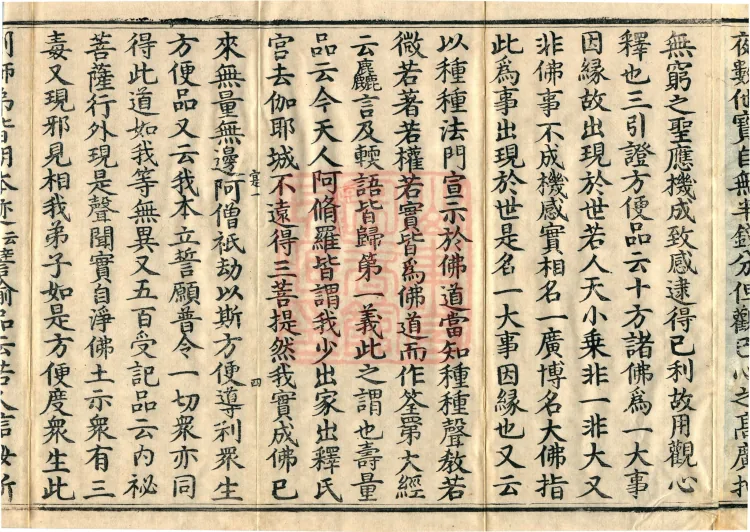 夜數他寶自無半錢分但觀己心之高廣扣
無窮之聖應機成致感逮得己利故用觀心
釋也三引證方便品云十方諸佛爲一大事
因緣故出現於世若人天小乘非一非大又
非佛事不成機感實相名一廣博名大佛指
此爲事出現於世是名一大事因緣也又云
以種種法門宣示於佛道當知種種聲教若
微若著若權若實皆爲佛道而作筌罤大經
云麤言及輭語皆歸第一義此之謂也壽量
品云今天人阿脩羅皆謂我少出家出釋氏
宮去伽耶城不遠得三菩提然我實成佛已
四
來無量無邊阿僧祇劫以斯方便導利眾生
方便品又云我本立誓願普令一切眾亦同
得此道如我等無異又五百受記品云內祕
菩薩行外現是聲聞實自淨佛土示眾有三
毒又現邪見相我弟子如是方便度眾生此
則師弟皆明本迹云譬喻品云若人信汝所